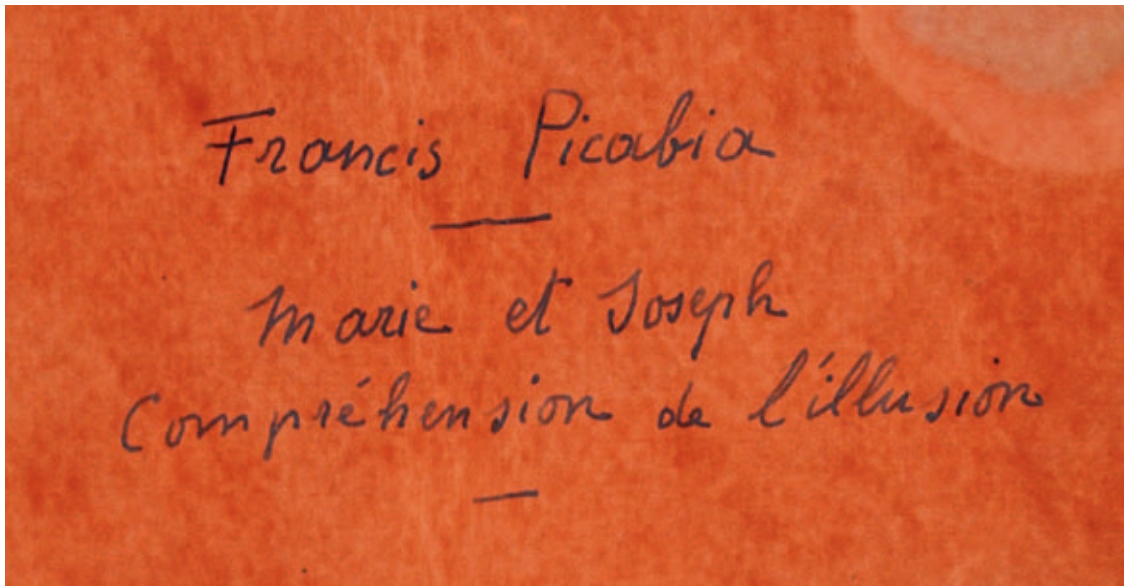 Francis Picabia
Marie et Joseph
Compréhension de l'illusion